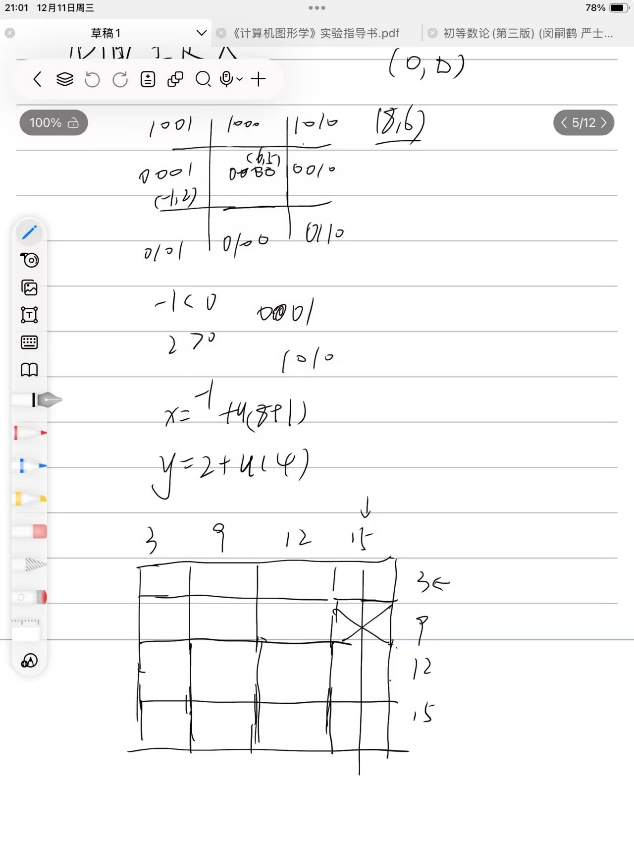 21:01 12月11日周三 ••• 78%
草稿1 《计算机图形学》实验指导书.pdf 初等数论 (第三版) (闵嗣鹤 严士...
(0,D)
100% 5/12
1001 1000 1010 (8,6)
(6,5)
0001 0010
(-1,2)
0101 0100 0110
-1<0 0001
2>0
1010
x=-1+u(8+1)
y=2+u(4)
↓
3 9 12 15
3←
9
12
15